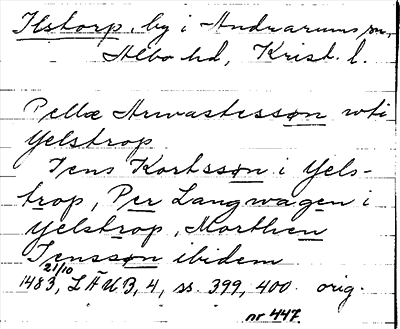 Ilstorp, by i Andrarums sn,
Albo hd, Krist. l.
Pellæ Arwastesson wti
yelstrop.
Jens Kortsson i yels-
trop, Per Langwagen i
yelstrop, Morthen
Jensson ibidem
21/10
1483, LÄUB, 4, ss. 399, 400. orig.
nr 447.